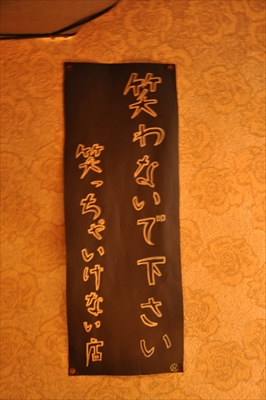 笑わないで下さい
笑っちゃいけない店